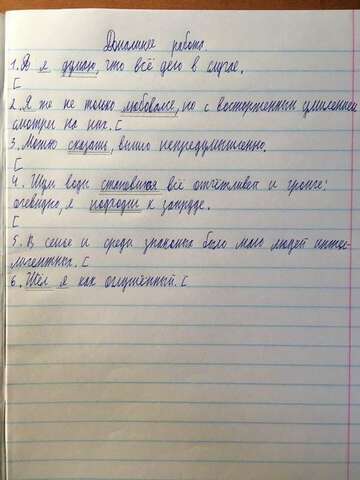 Домашняя работа.
1. А я думаю, что всё дело в случае.
[
2. Я же не только любовался, но с восторженным умилением
смотрел на них. [
3. Можно сказать, вышло непредумышленно.
[
4. Шум воды становился всё отчётливей и громче:
очевидно, я подходил к запруде.
[
5. В семье и среди знакомых было мало людей интел-
лигентных. [
6. Шёл я как оглушённый. [